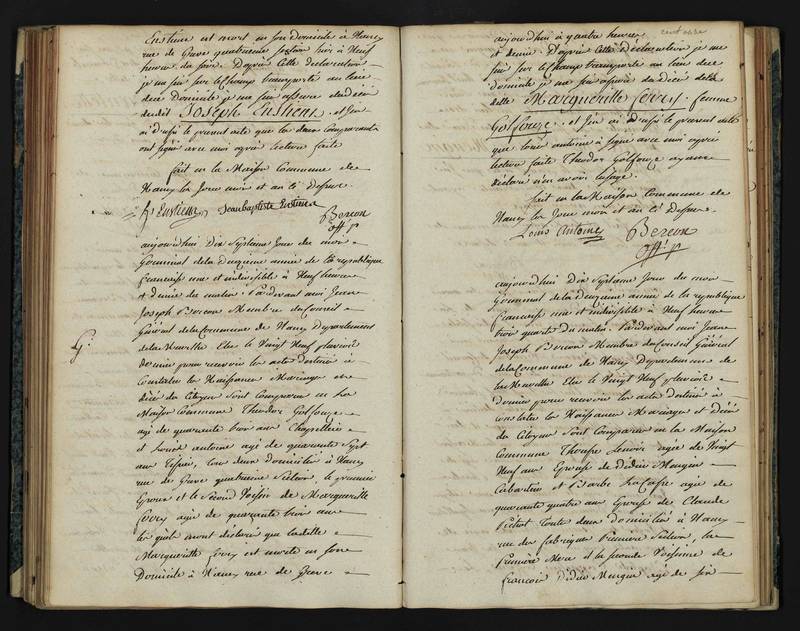 Enstienx est mort en son Domicile à Nancy
rue de Greve quatrieme section hier à Neuf
heures du soir. D'aprés Cette déclaration
je me suis sur le Champ transporté au lieu
de ce Domicile je me suis assuré du décès
dudit Joseph Enstienx. et j'en
ai dressé le present acte que les deux Comparants
ont signé avec moi aprés lecture faite
fait en la Maison Commune de
Nancy les Jour mois et an ci Dessus.
Jean baptiste Enstienx
Bercon
off. p.
aujourd'hui Dix Septieme Jour du mois
Germinal de la Deuxieme année de la republique
francaise une et indivisible à Neuf heures
et demie du matin. Pardevant moi Jean
Joseph Bercon Membre du Conseil
Général de la Commune de Nancy Departement
de la Meurthe Elu le Vingt Neuf pluviose
dernier pour recevoir les actes destinés à
Constater les Naissances Mariages et
décès des Citoyens sont Comparus en la
Maison Commune Theodor
agé de quarante trois ans Chapellier
et Louis antoine agé de quarante Sept
ans Tissier, tous deux domiciliés à Nancy
rue de Greve quatrieme Section, le premier
Epoux et le Second Voisin de Margueritte
ferry agée de quarante trois ans
lesquels m'ont déclaré que ladite
Margueritte ferry est morte en son
Domicile à Nancy rue de Greve
aujourd'hui à quatre heures
et demie. D'aprés Cette déclaration je me
suis sur le Champ transporté au lieu de ce
domicile je me suis assuré du décès de la
dite Margueritte ferry femme
et j'en ai dressé le present acte
que Louis antoine a signé avec moi aprés
lecture faite Theodor ayant
déclaré n'en avoir l'usage.
fait en la Maison Commune de
Nancy les Jour mois et an ci Dessus.
Louis Antoine
Bercon
off. p.
aujourd'hui Dix Septieme Jour du mois
Germinal de la Deuxieme année de la republique
francaise une et indivisible à Neuf heures
trois quarts du matin. Pardevant moi Jean
Joseph Bercon Membre du Conseil Général
de la Commune de Nancy Departement de
la Meurthe Elu le Vingt Neuf pluviose
dernier pour recevoir les actes destinés à
constater les Naissances Mariages et Décès
des Citoyens sont Comparus en la Maison
Commune Therese Lenoir agée de Vingt
Neuf ans Epouse de Didier Mengin
Cabartier et Barbe agée de
quarante quatre ans Epouse de Claude
toutes deux domiciliées à Nancy
rue des fabriques Premiere Section, la
Premiere Mere et la seconde Voisine de
francois Didier Mengin agé de six